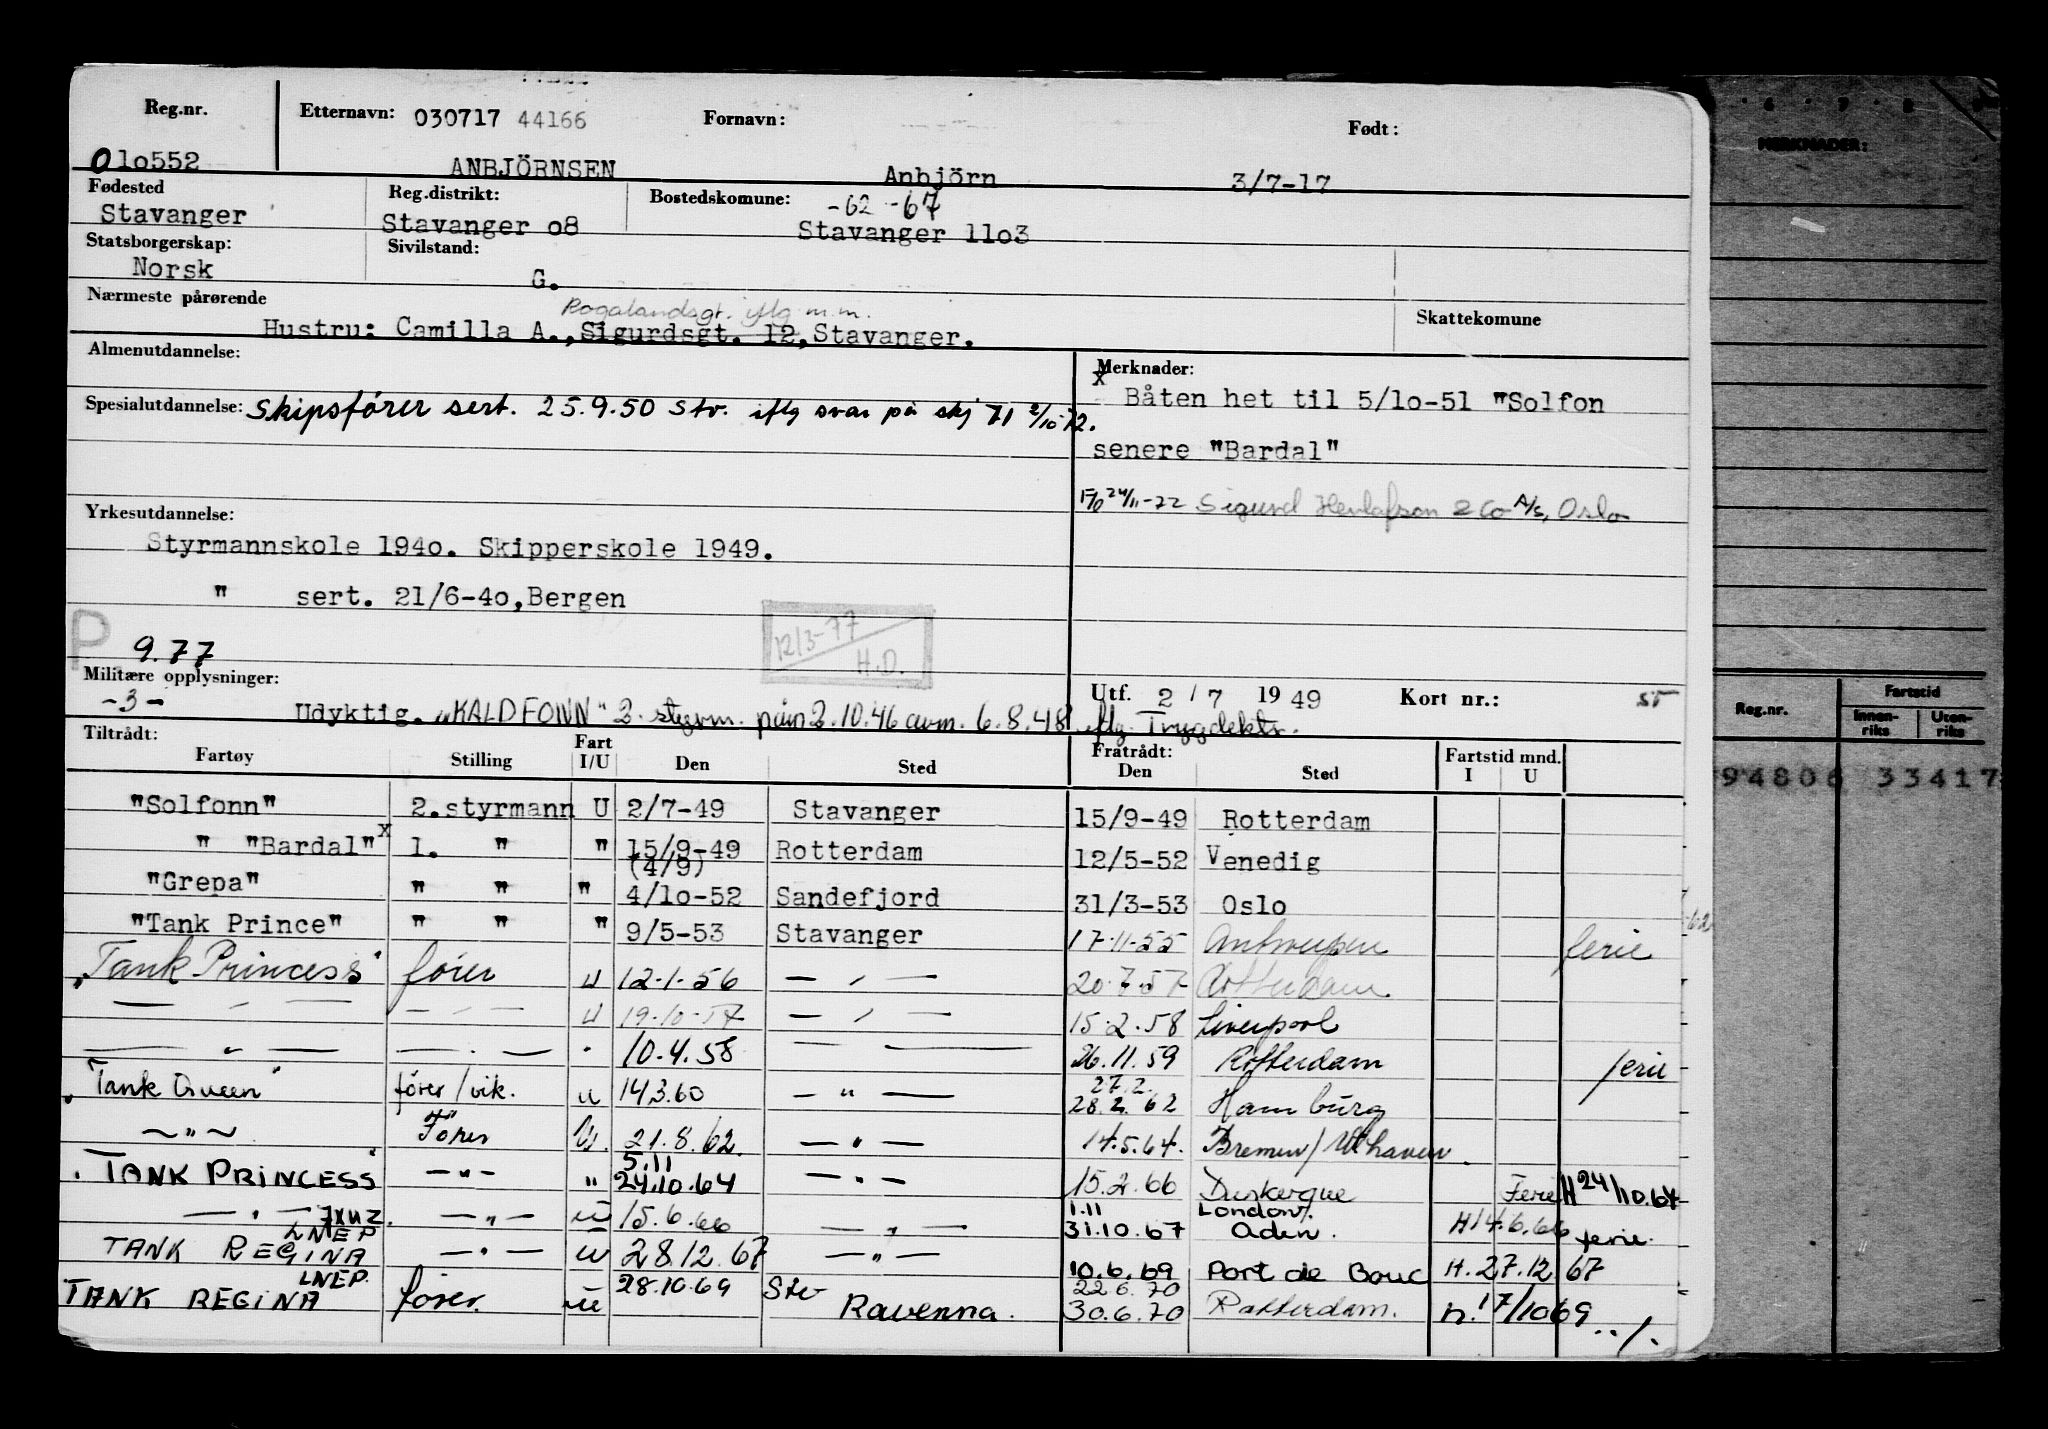 Reg.nr. Etternavn: 030717 44166 Fornavn: Født:
0 lo552 ANBJÖRNSEN Anbjörn 3/7-17
Fødested Reg.distrikt: Bostedskomune: -62 -67
Stavanger Stavanger o8 Stavanger 11o3
Statsborgerskap: Sivilstand:
Norsk G.
Nærmeste pårørende Rogalandsgt. iflg m.m. Skattekomune
Hustru: Camilla A., Sigurdsgt. 12, Stavanger.
Almenutdannelse: Merknader:
x Båten het til 5/lo-51 "Solfon
Spesialutdannelse: Skipsfører sert. 25.9.50 Stv. iflg svar på skj 71 2/10-72.
senere "Bardal"
F/o 24/11-72 Sigurd Herlofson & Co A/S, Oslo
Yrkesutdannelse:
Styrmannskole 194o. Skipperskole 1949.
" sert. 21/6-4o, Bergen
P 9.77
12/3-77
H.D.
Militære opplysninger: Utf. 2 / 7 19 49 Kort nr.: ST
-3- Udyktig. "KALDFONN" 2. styrm. påm 2.10.46 avm. 6.8.48 iflg. Trygdektr.
Tiltrådt: Fratrådt:
Fartøy Stilling Fart I/U Den Sted Den Sted Fartstid mnd. I U
"Solfonn" 2.styrmann U 2/7-49 Stavanger 15/9-49 Rotterdam
" "Bardal" x 1. " " 15/9-49 Rotterdam 12/5-52 Venedig
(4/9)
"Grepa" " " " 4/lo-52 Sandefjord 31/3-53 Oslo
"Tank Prince" " " " 9/5-53 Stavanger 17.11.55 Antwerpen ferie
"Tank Princess" fører U 12.1.56 — " — 20.7.57 Rotterdam
— " — — " — U 19.10.57 — " — 15.2.58 Liverpool
— " — — " — " 10.4.58 — " — 26.11.59 Rotterdam ferie
27.2.
"Tank Queen" fører/vik. u 14.3.60 — " — 28.2.62 Hamburg
— " — Fører U. 21.8.62. — " — 14.5.64. Bremen/W'haven.
5.11
"TANK PRINCESS" — " — " 24.10.64 — " — 15.2.66 Dunkerque Ferie H 24/10.64
1.11 London.
— " — JXUZ. — " — u 15.6.66 — " — 31.10.67 Aden. H 14.6.66 ferie.
LNEP
TANK REGINA — " — u 28.12.67 — " — 10.6.69 Port de Bouc H. 27.12 67
LNEP. 28.10.69 Stv 22.6.70
TANK REGINA fører. u Ravenna. 30.6.70 Rotterdam. n. 17/10 69
../.
6 7 8
MERKNADER:
Reg.nr. Fartstid
Innenriks Utenriks
94806 33417